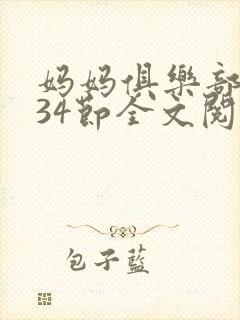 妈妈俱樂部
34節全文閱
包子藍